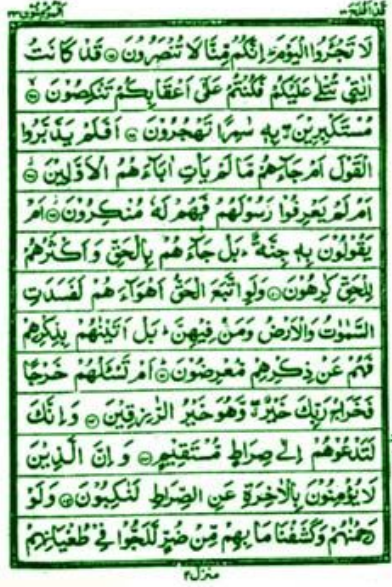 قد افلح ١٨
المؤمنون ٢٣
لَا تَجْـَٔرُوا الْيَوْمَ ۫ اِنَّكُمْ مِّنَّا لَا تُنْصَرُوْنَ ۞ قَدْ كَانَتْ
اٰيٰتِيْ تُتْلٰى عَلَيْكُمْ فَكُنْتُمْ عَلٰٓى اَعْقَابِكُمْ تَنْكِصُوْنَ ۞
مُسْتَكْبِرِيْنَ ۖ بِهٖ سٰمِرًا تَهْجُرُوْنَ ۞ اَفَلَمْ يَدَّبَّرُوا
الْقَوْلَ اَمْ جَآءَهُمْ مَّا لَمْ يَاْتِ اٰبَآءَهُمُ الْاَوَّلِيْنَ ۞
اَمْ لَمْ يَعْرِفُوْا رَسُوْلَهُمْ فَهُمْ لَهٗ مُنْكِرُوْنَ ۞ اَمْ
يَقُوْلُوْنَ بِهٖ جِنَّةٌ ؕ بَلْ جَآءَهُمْ بِالْحَقِّ وَاَكْثَرُهُمْ
لِلْحَقِّ كٰرِهُوْنَ ۞ وَلَوِ اتَّبَعَ الْحَقُّ اَهْوَآءَهُمْ لَفَسَدَتِ
السَّمٰوٰتُ وَالْاَرْضُ وَمَنْ فِيْهِنَّ ؕ بَلْ اَتَيْنٰهُمْ بِذِكْرِهِمْ
فَهُمْ عَنْ ذِكْرِهِمْ مُّعْرِضُوْنَ ۞ اَمْ تَسْـَٔلُهُمْ خَرْجًا
فَخَرَاجُ رَبِّكَ خَيْرٌ ۖ وَّهُوَ خَيْرُ الرّٰزِقِيْنَ ۞ وَاِنَّكَ
لَتَدْعُوْهُمْ اِلٰى صِرَاطٍ مُّسْتَقِيْمٍ ۞ وَاِنَّ الَّذِيْنَ
لَا يُؤْمِنُوْنَ بِالْاٰخِرَةِ عَنِ الصِّرَاطِ لَنٰكِبُوْنَ ۞ وَلَوْ
رَحِمْنٰهُمْ وَكَشَفْنَا مَا بِهِمْ مِّنْ ضُرٍّ لَّلَجُّوْا فِيْ طُغْيَانِهِمْ
منزل ٤